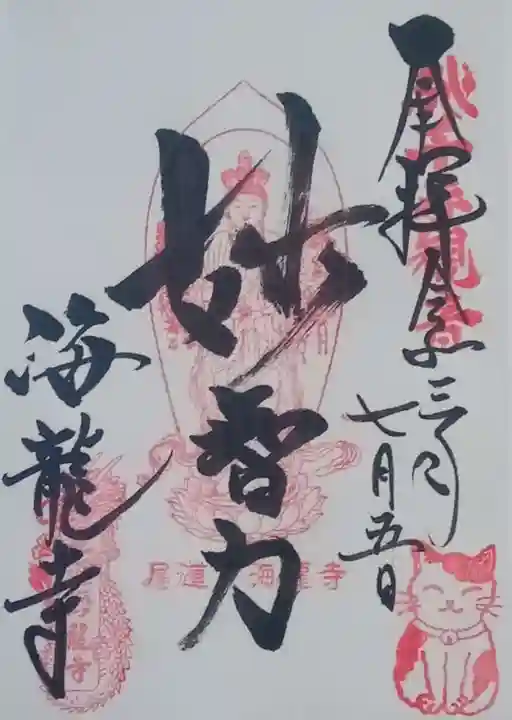 奉拝 令和三年
七月五日
妙智力
尾道 海龍寺
海龍寺